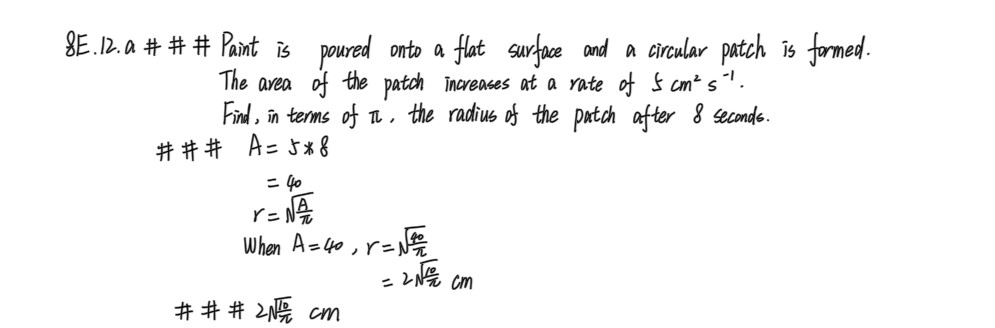 8E.12.a ### Paint is poured onto a flat surface and a circular patch is formed.
The area of the patch increases at a rate of 5 cm² s⁻¹.
Find, in terms of π, the radius of the patch after 8 seconds.
### A = 5*8
= 40
r = √(A/π)
When A = 40, r = √(40/π)
= 2√(10/π) cm
### 2√(10/π) cm